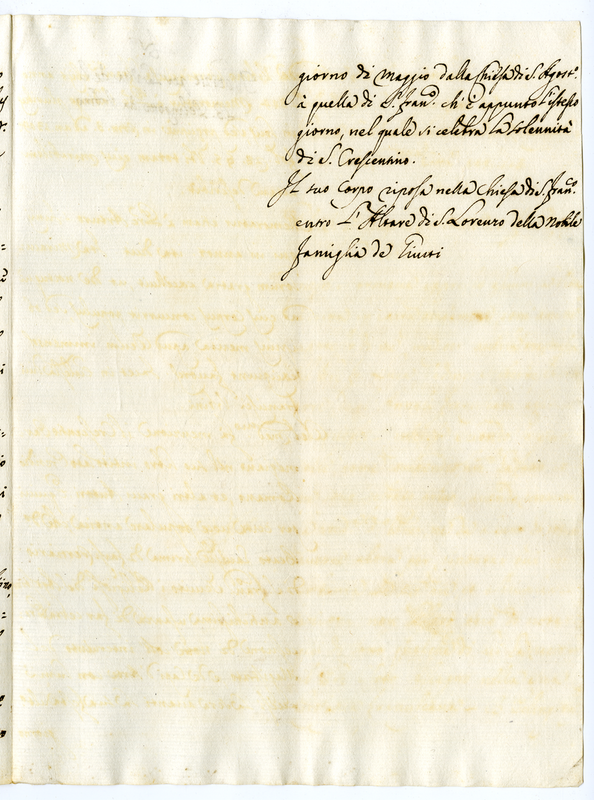 giorno di Maggio dalla Chiesa di S. Agost.º
à quella di S. Fran.º ch' è appunto l'istesso
giorno, nel quale si celebra la solennità
di S. Crescentino.
Il suo Corpo riposa nella Chiesa di S. Fran.º
entro l' Altare di S. Lorenzo della Nobile
famiglia de